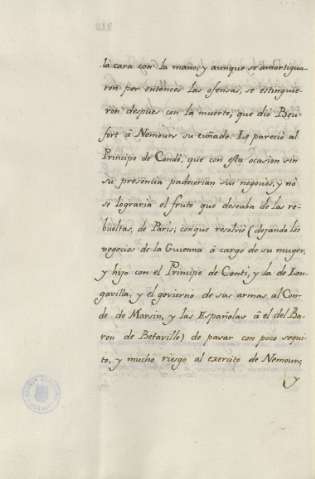 la cara con la mano, y aunque se amortigua
ron por entonces las ofensas, se estinguie
ron despues con la muerte, que dió Beu
fort á Nemours su cuñado. Le pareció al
Principe de Condé, que con esta ocasion sin
su presencia padecerian sus negocios, y nó
se lograria el fruto que deseaba de las re
bueltas, de Paris; conque resolvió (dejando los
negocios de la Guienna á cargo de su muger,
y hijo con el Principe de Conti, y la de Lon
gavilla, y el govierno de sus armas al Con
de de Marsin, y las Españolas á el del Ba
ron de Batavillo) de pasar con poco sequi
to, y mucho riesgo al exercito de Nemours,
y